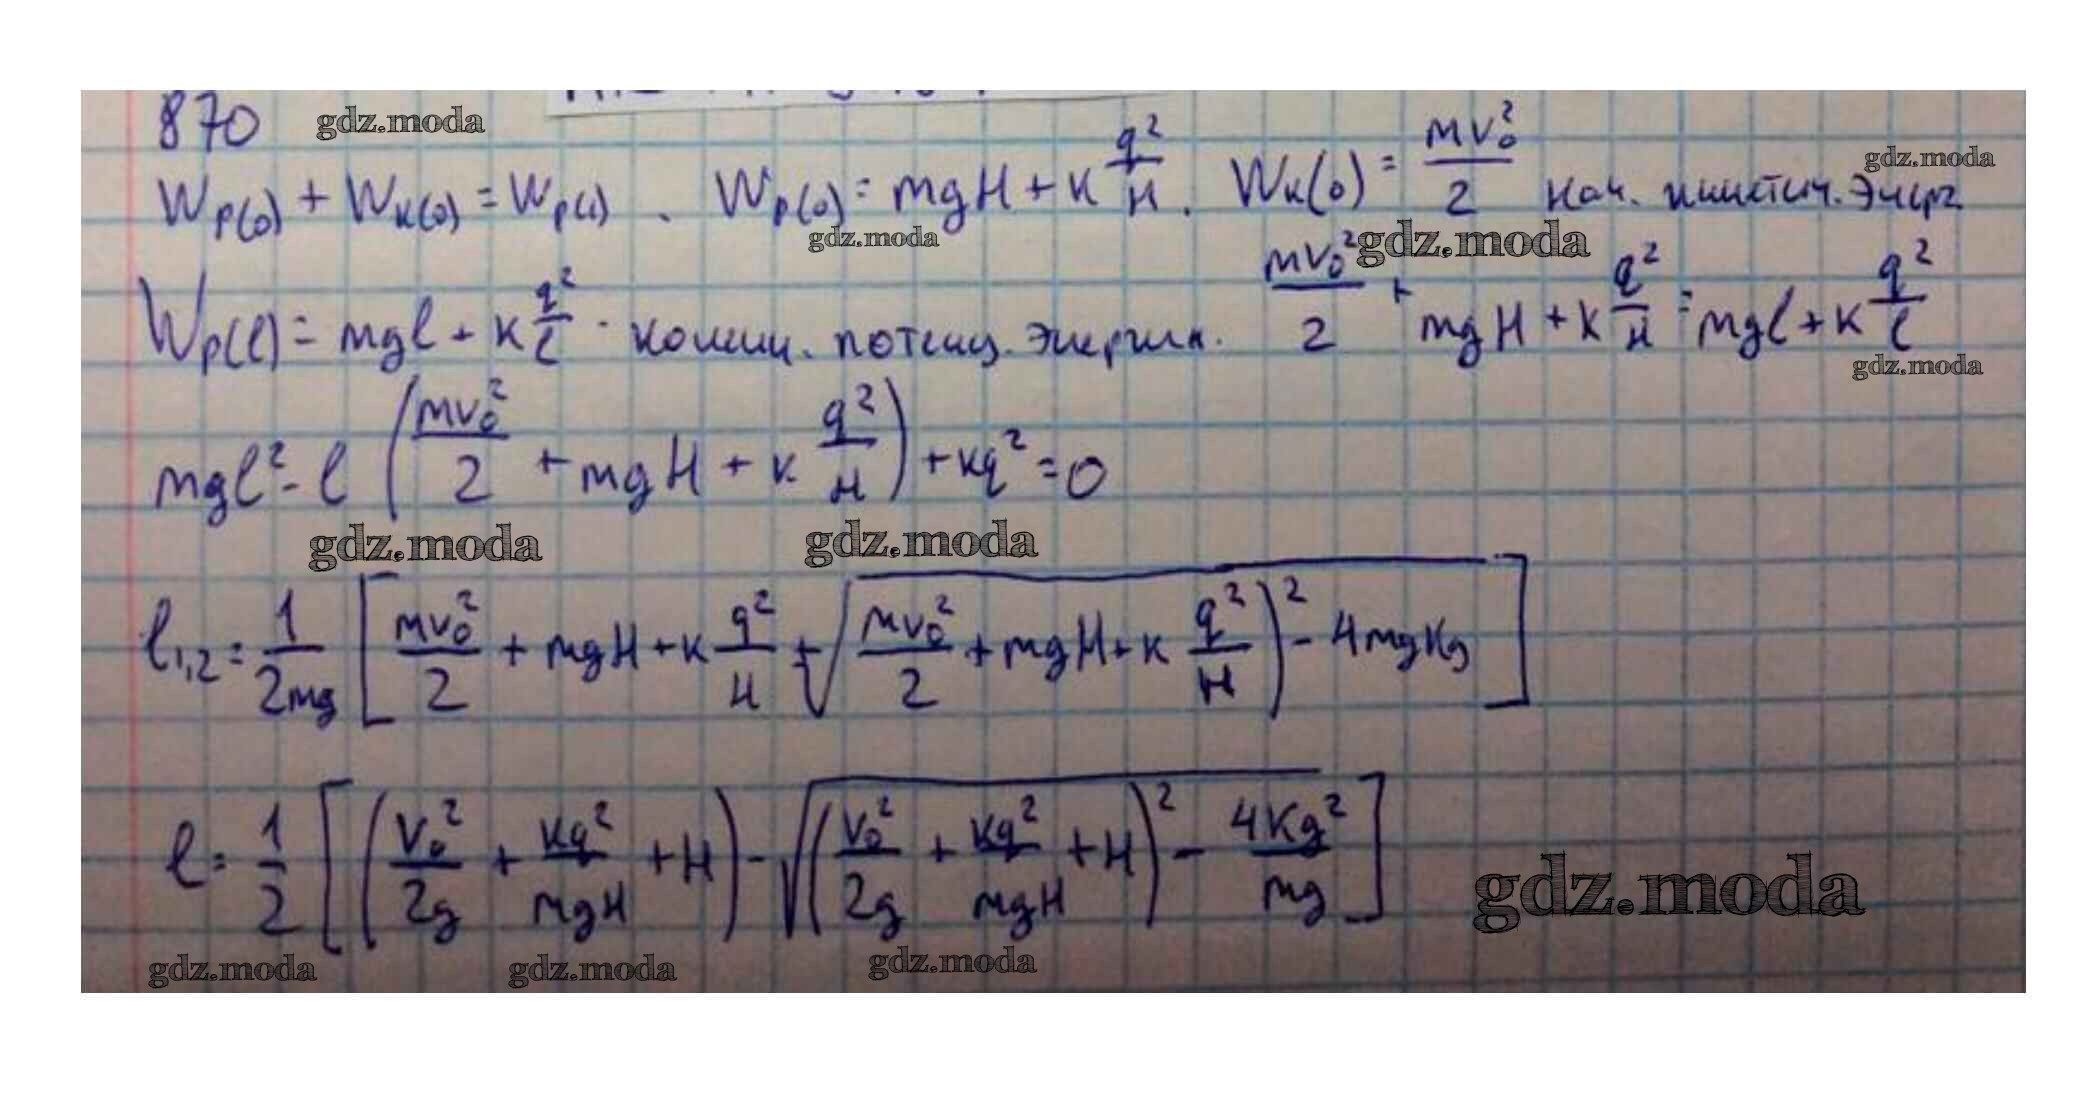 870 gdz.moda
W_p(0) + W_k(0) = W_p(l) . W_p(0) = mgH + k q²/H . W_k(0) = mv₀²/2 нач. кинетич. энерг gdz.moda
gdz.moda gdz.moda
W_p(l) = mgl + k q²/l · конеч. потенц. энергия. mv₀²/2 + mgH + k q²/H = mgl + k q²/l
gdz.moda
mgl² - l (mv₀²/2 + mgH + k q²/H) + kq² = 0
gdz.moda gdz.moda
l₁,₂ = 1/2mg [mv₀²/2 + mgH + k q²/H ± √(mv₀²/2 + mgH + k q²/H)² - 4mgkq]
l = 1/2 [(v₀²/2g + kq²/mgH + H) - √((v₀²/2g + kq²/mgH + H)² - 4kq²/mg)] gdz.moda
gdz.moda gdz.moda gdz.moda